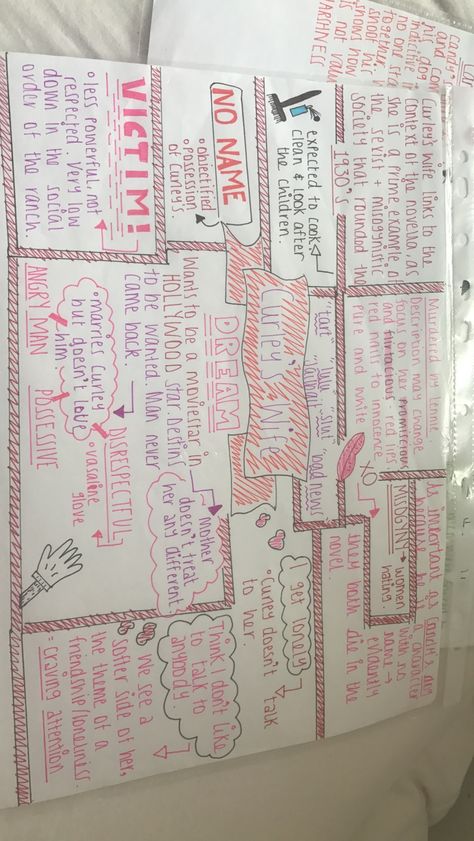 Curley's wife links to the
context of the novella, as
she is a prime example of
the sexist + misogynistic
society that rounded the
1930's
expected to cook,
clean & look after
the children.
NO NAME
• objectified
• Possession
of Curley's.
VICTIM!
• less powerful, not
respected. Very low
down in the social
order of the ranch.
Murdered by Lennie.
Description may change
focus on her promiscious
and flirtacious red lips
red nails to innocence
pure and white
"tart"
"slut"
"bad news"
Curley's Wife
DREAM
Wants to be a moviestar in
HOLLYWOOD star. Destins
to be wanted. Man never
came back.
Mother
doesn't treat
her any different.
• marries Curley
but doesn't love
him.
DISRESPECTFUL
• vasaline
glove
ANGRY MAN
POSSESSIVE
As important as
character
with no
name →
they both die in the
novel.
MYSOGINY → women
hating.
XO
I get lonely
• Curley doesn't talk
to her.
Think I don't like
to talk to
anybody.
• We see a
softer side of her,
the theme of a
friendship/loneliness.
= craving attention
candy's
and
his dog
no one
together
shoot his
shows how
is not
HARSHNESS